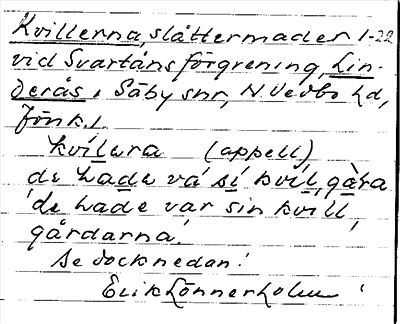 Kvillerna, slåttermader 1-22
vid Svartåns förgrening, Lin-
derås, Säby snr, N. Vedbo hd,
Jönk. l.
kvílera (appell)
de hade vá sí kvíl, gàra
'de hade var sin kvill,
gårdarna'.
Se dock nedan!
Erik Lönnerholm